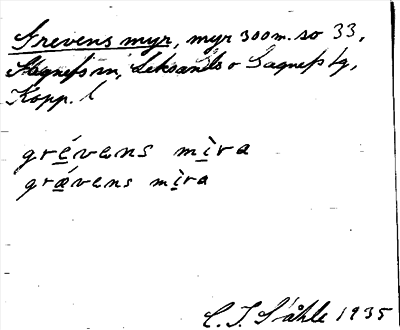 Grevens myr, myr 300 m. so 33,
Sågnefs in, Leksands o Gagnefs tg,
Kopp. l
grévens mìra
grǽvens mìra
C. I. Ståhle 1935